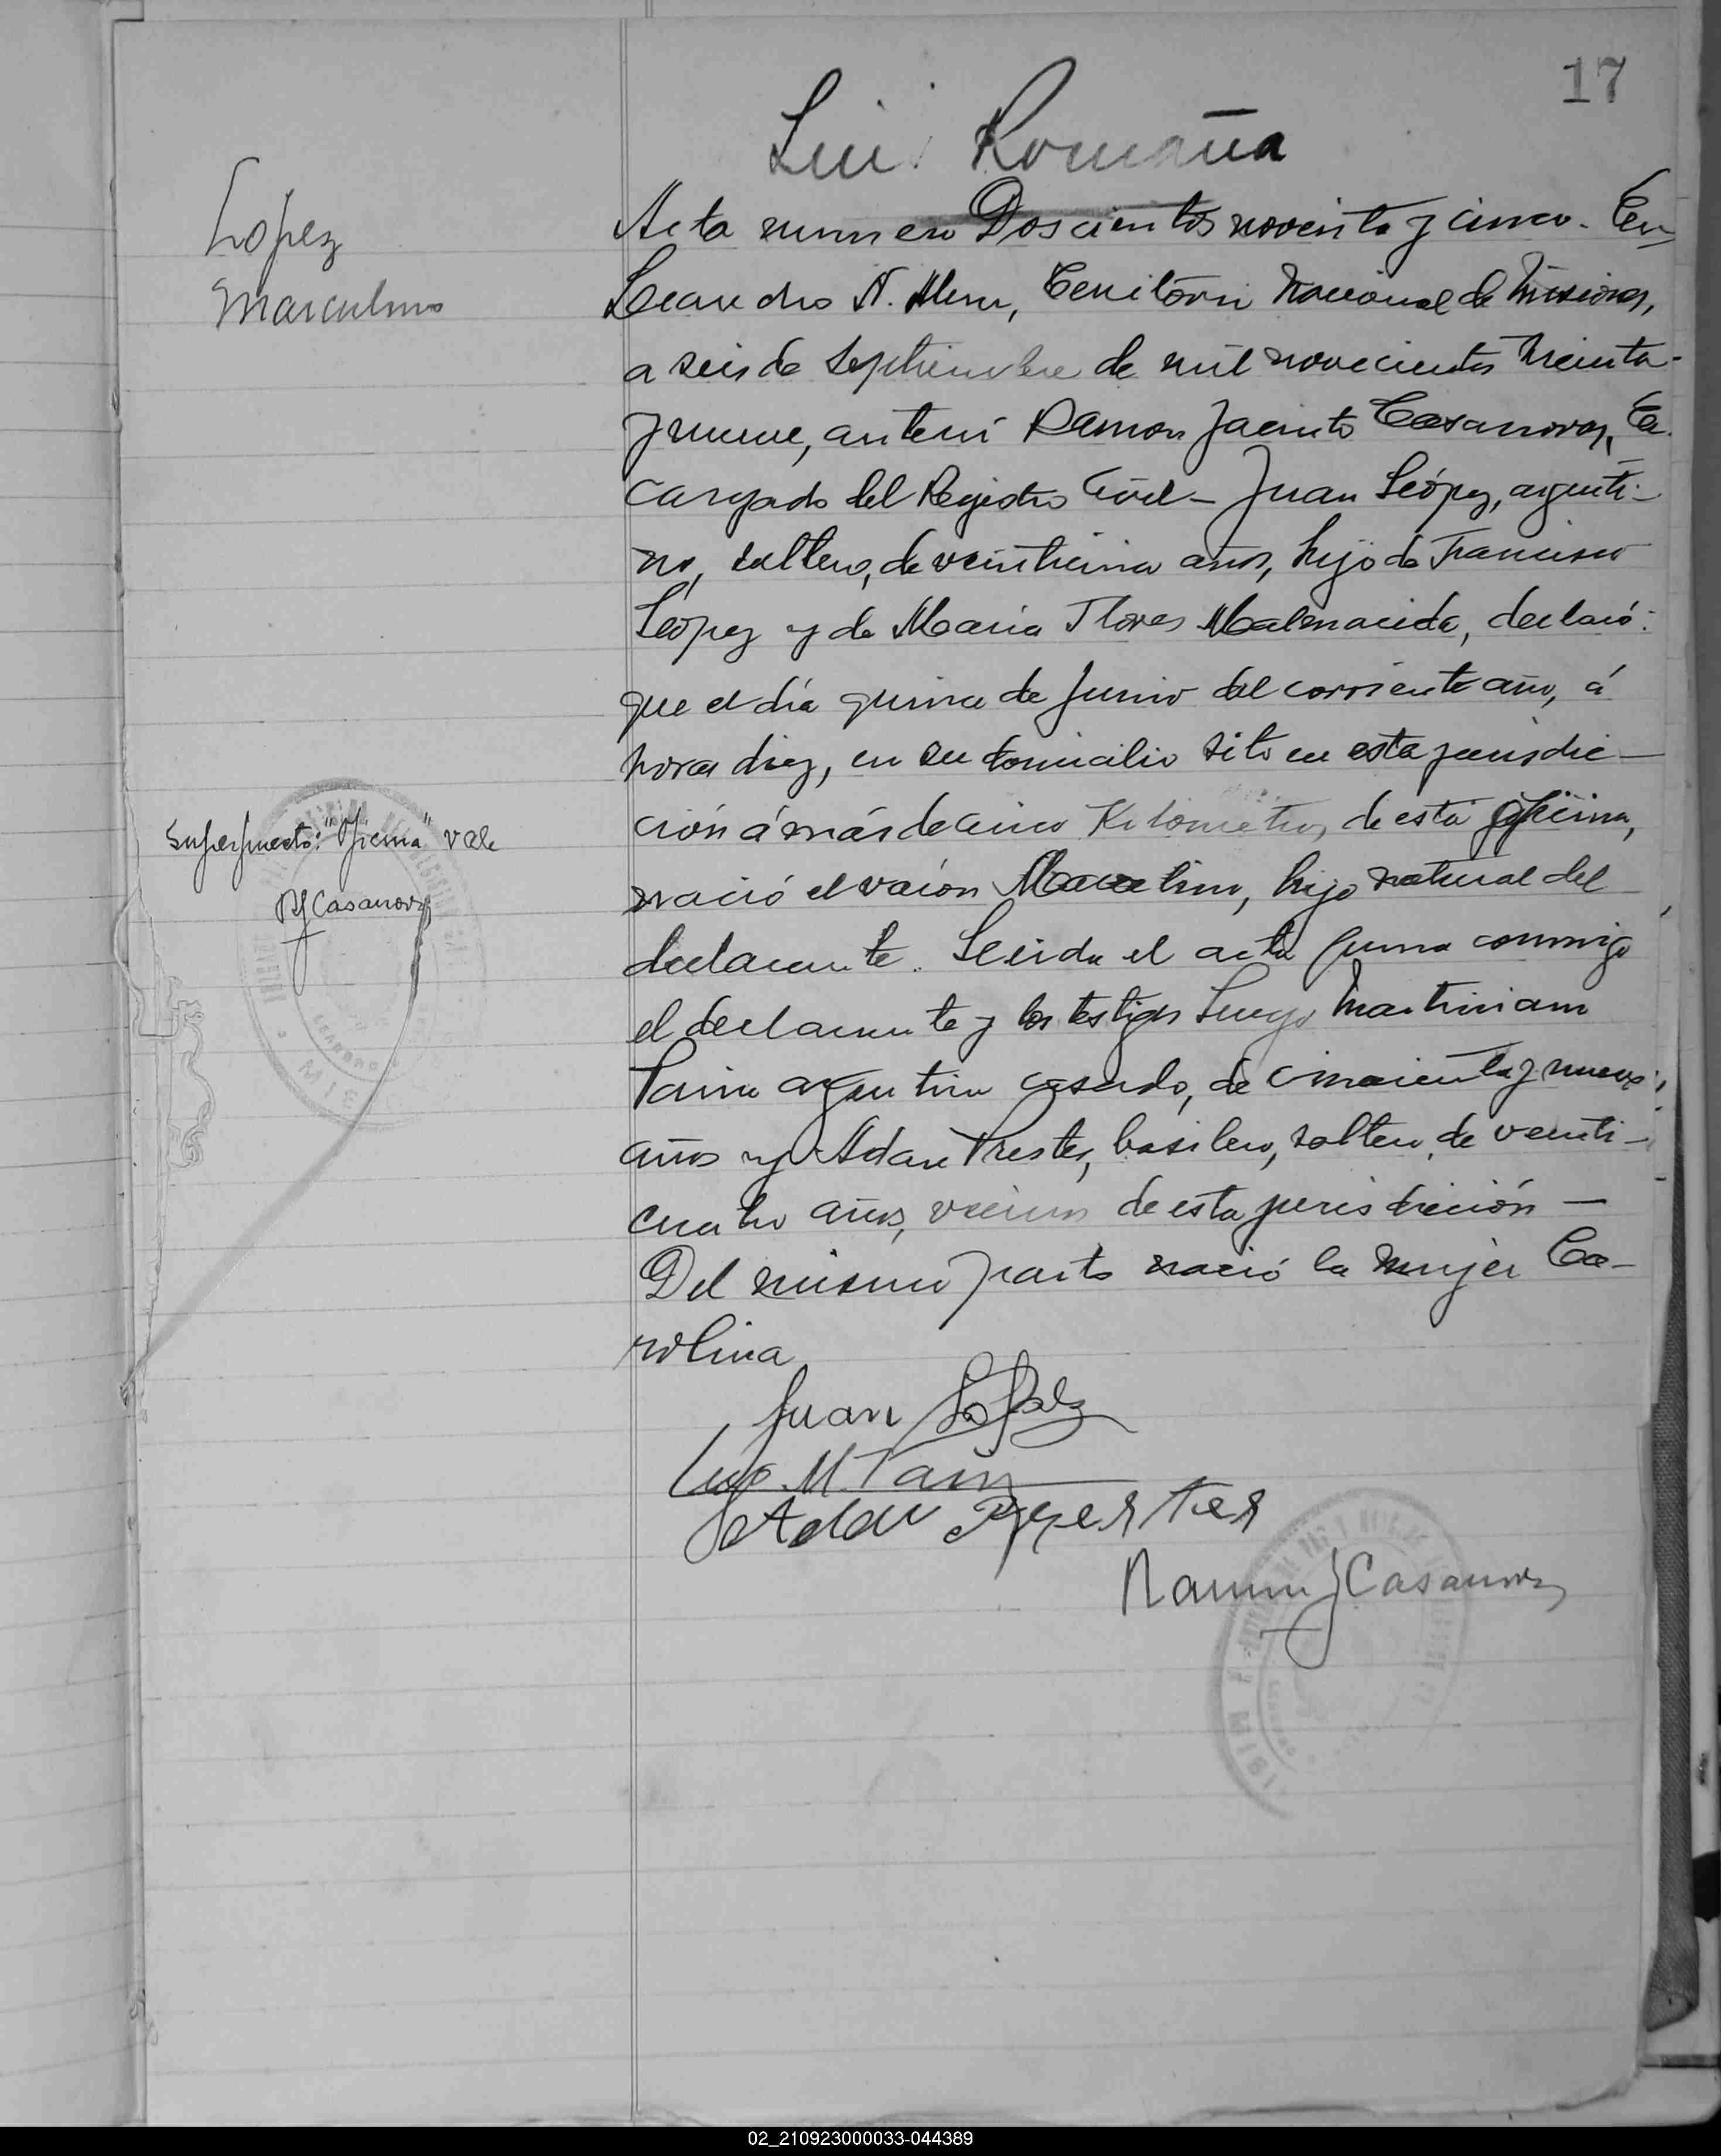 17
Luis Romaña
Lopez
Marculino
Acta numero Doscientos noventa y cinco. En
Leandro N. Alem, Territorio Nacional de Misiones,
a seis de Septiembre de mil novecientos treinta
y nueve, ante mi Ramon Jacinto Casanova, En
cargado del Registro Civil – Juan López, argenti-
no, soltero, de veinticinco años, hijo de Francisco
López y de Maria Flores Malmacida, declaró:
que el día quince de Junio del corriente año, á
horas diez, en su domicilio sito en esta jurisdic-
ción á más de cinco Kilometros de esta oficina,
nació el varón Marcelino, hijo natural del
declarante. Leida el acta firma conmigo
el declarante y los testigos Lugo Martiniano
argentino casado, de cincuenta y nueve
años y Adan Prestes, brasilero, soltero, de veinti-
cuatro años, vecinos de esta jurisdicción –
Del mismo parto nació la mujer Ca-
rolina
Superpuesto: "Oficina" Vale
RJCasanova
Juan López
Lugo. M.
Adan Presstes
Ramon J Casanova
02_210923000033-044389